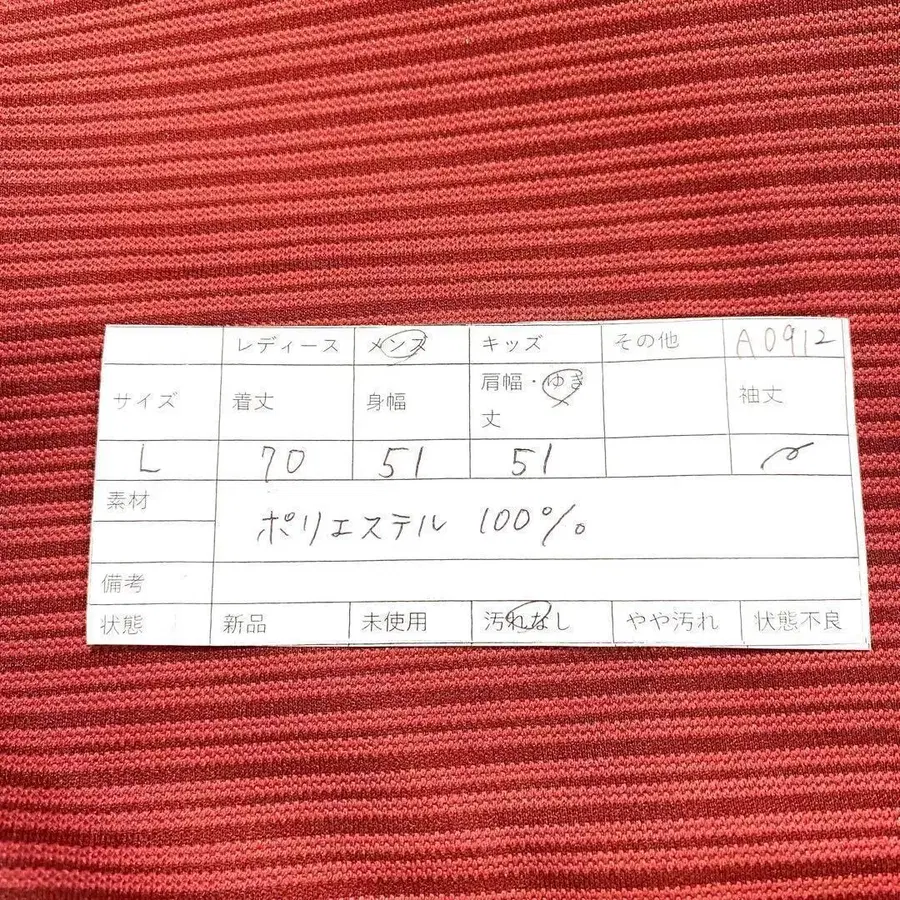 レディース メンズ キッズ その他 A0912
サイズ 着丈 身幅 肩幅・ゆき丈 袖丈
L 70 51 51
素材 ポリエステル 100%
備考
状態 新品 未使用 汚れなし やや汚れ 状態不良